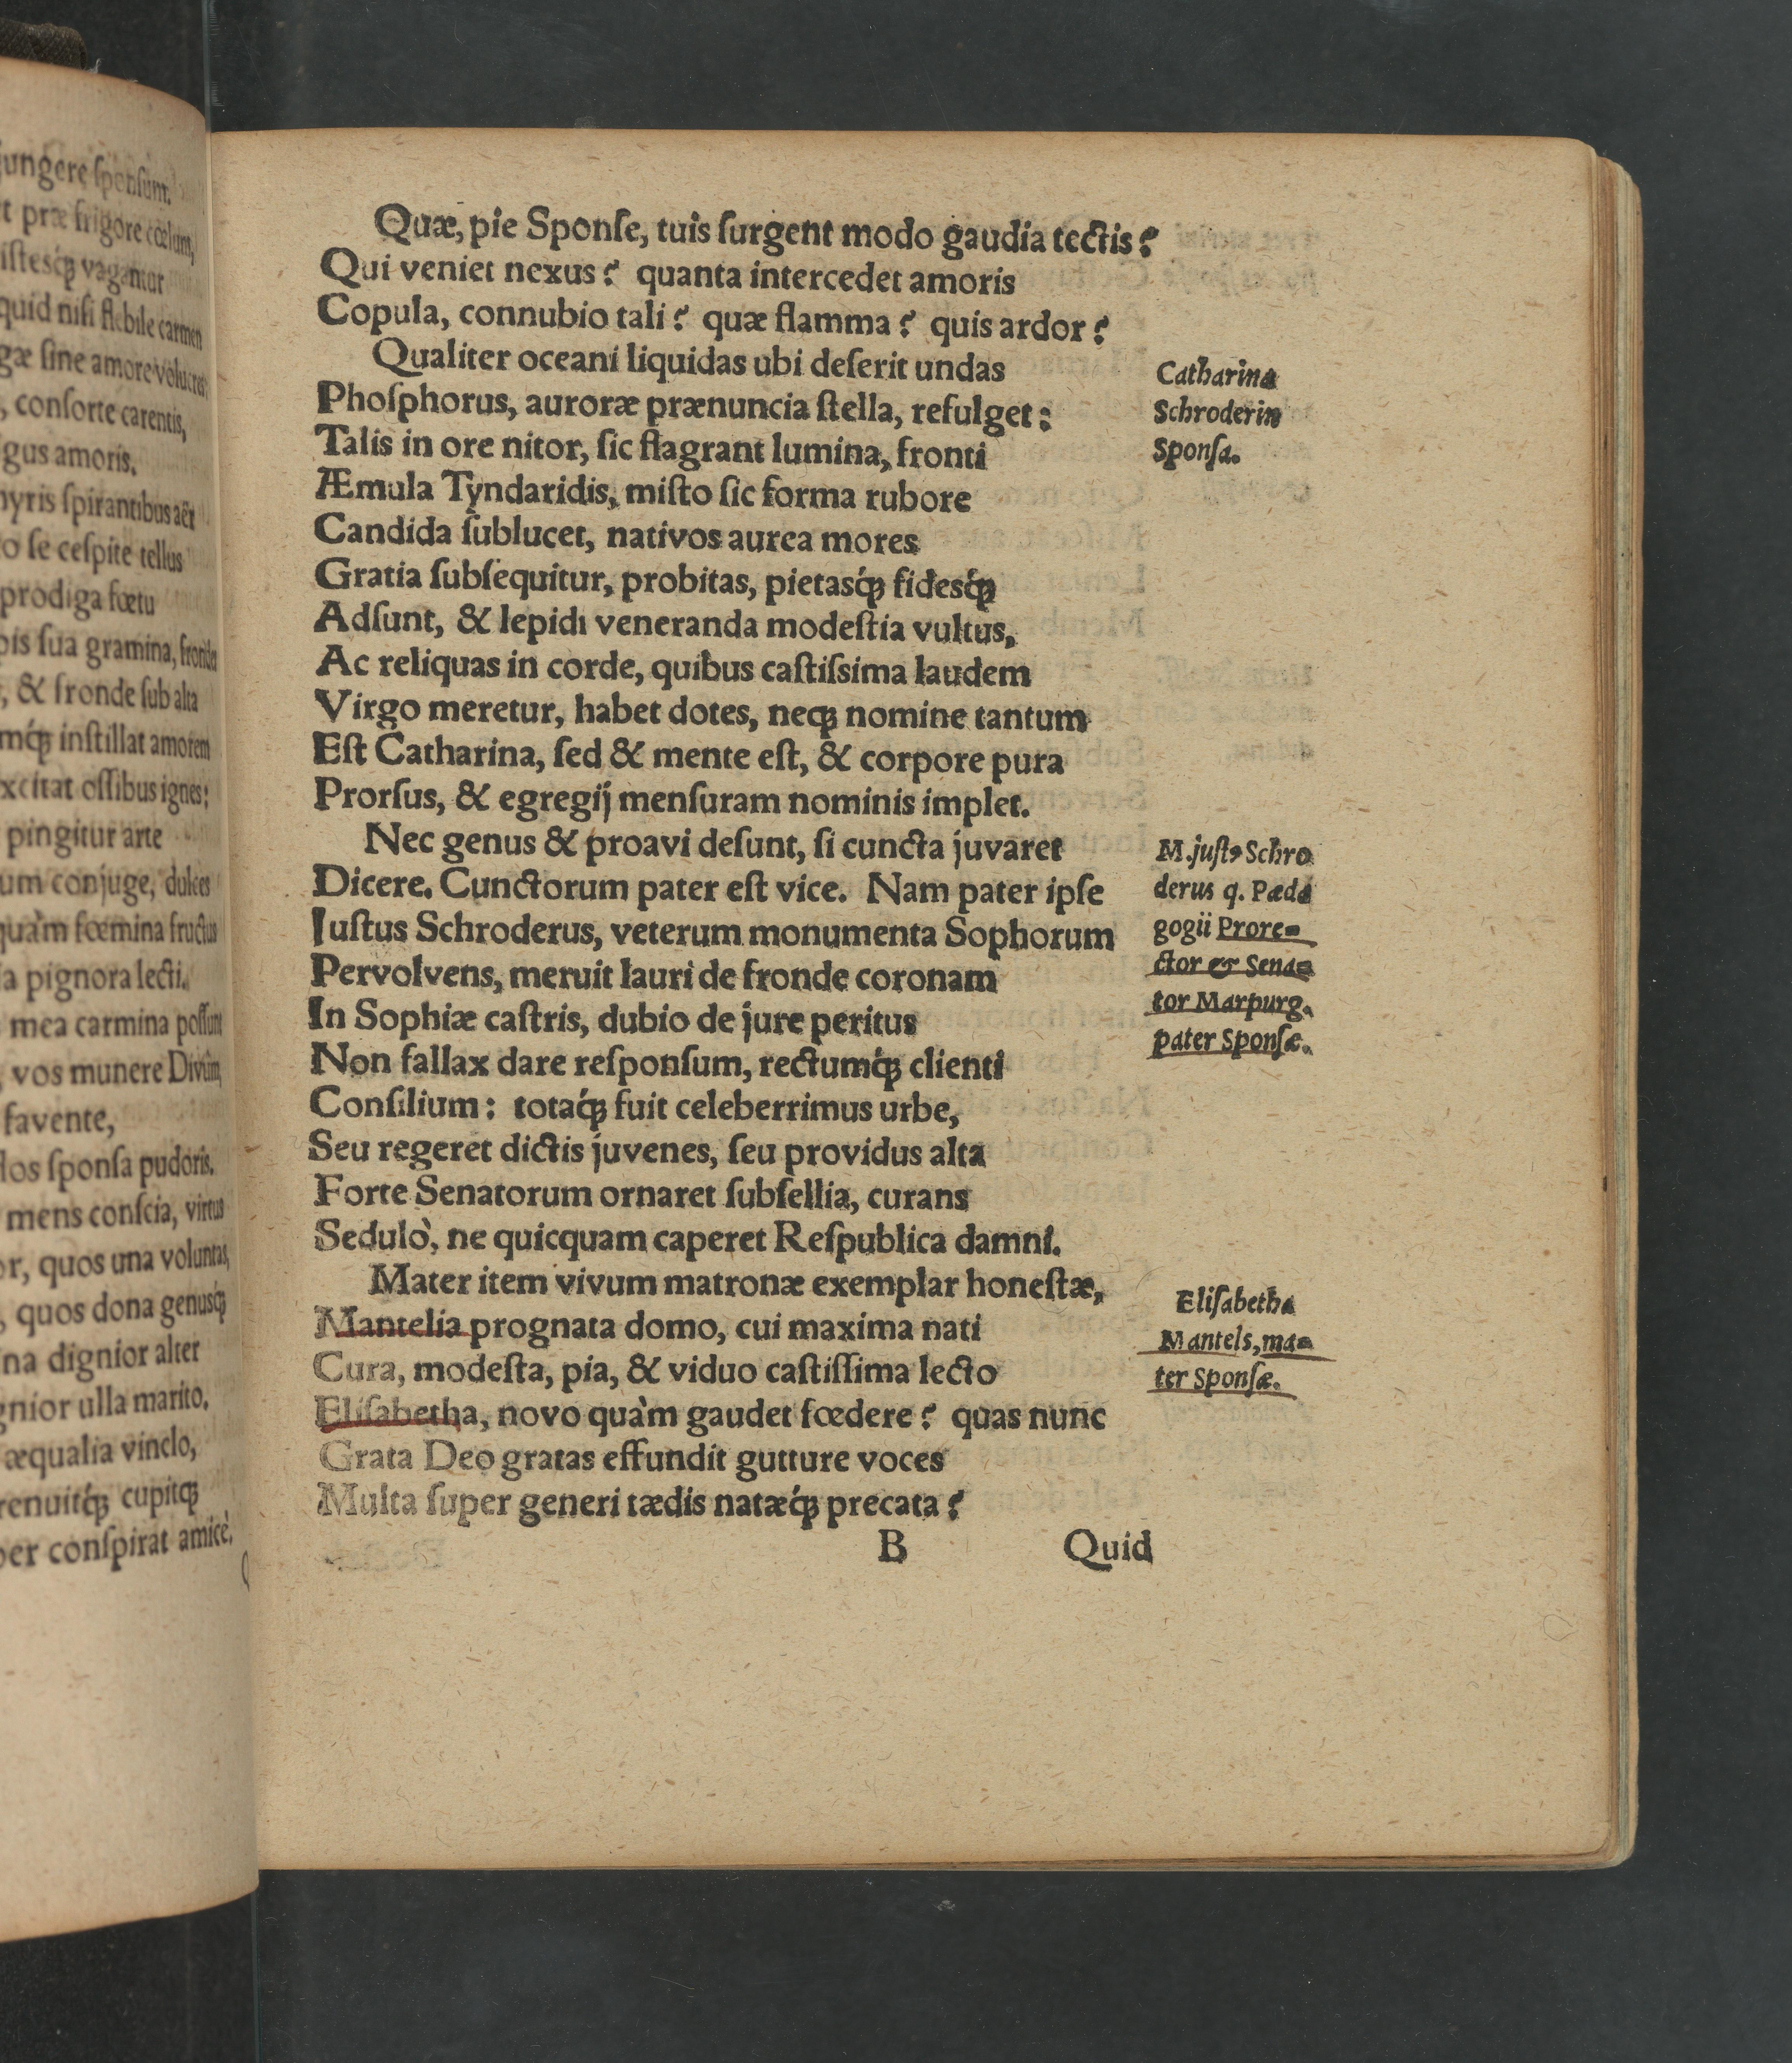 jungere ſponſum.
t præ frigore cœlum,
iſtesq́ꝫ vagantur
quid niſi flebile carmen
gæ ſine amore volucres,
, conſorte carentis,
gus amoris.
hyris ſpirantibus aër
o ſe ceſpite tellus
prodiga fœtu
ois ſua gramina, frondes
, & fronde ſub alta
mq́ꝫ inſtillat amorem
xcitat oſſibus ignes;
pingitur arte
um conjuge, dulces
quàm fœmina fructus
a pignora lecti.
mea carmina poſſunt
, vos munere Divûm,
favente,
los ſponſa pudoris.
mens conſcia, virtus
or, quos una voluntas,
, quos dona genusq́ꝫ
na dignior alter
gnior ulla marito.
æqualia vinclo,
renuitq́ꝫ cupitqꝫ
per conſpirat amicè.
Quæ, pie Sponſe, tuis ſurgent modo gaudia tectis?
Qui veniet nexus? quanta intercedet amoris
Copula, connubio tali? quæ flamma? quis ardor?
Qualiter oceani liquidas ubi deſerit undas
Phoſphorus, auroræ prænuncia ſtella, refulget:
Talis in ore nitor, ſic flagrant lumina, fronti
Æmula Tyndaridis, miſto ſic forma rubore
Candida ſublucet, nativos aurea mores
Gratia ſubſequitur, probitas, pietasq́ꝫ fidesq́ꝫ
Adſunt, & lepidi veneranda modeſtia vultus,
Ac reliquas in corde, quibus caſtiſsima laudem
Virgo meretur, habet dotes, neqꝫ nomine tantum
Eſt Catharina, ſed & mente eſt, & corpore pura
Prorſus, & egregij menſuram nominis implet.
Nec genus & proavi deſunt, ſi cuncta juvaret
Dicere. Cunctorum pater eſt vice. Nam pater ipſe
Iuſtus Schroderus, veterum monumenta Sophorum
Pervolvens, meruit lauri de fronde coronam
In Sophiæ caſtris, dubio de jure peritus
Non fallax dare reſponſum, rectumq́ꝫ clienti
Conſilium: totaq́ꝫ fuit celeberrimus urbe,
Seu regeret dictis juvenes, ſeu providus alta
Forte Senatorum ornaret ſubſellia, curans
Sedulò, ne quicquam caperet Reſpublica damni.
Mater item vivum matronæ exemplar honeſtæ,
Mantelia prognata domo, cui maxima nati
Cura, modeſta, pia, & viduo caſtiſſima lecto
Eliſabetha, novo quàm gaudet fœdere? quas nunc
Grata Deo gratas effundit gutture voces
Multa ſuper generi tædis natæq́ꝫ precata?
B Quid
Catharina
Schroderin
Sponſa.
M. juſtꝰ Schro
derus q. Pæda
gogii Prore=
ctor & Sena=
tor Marpurg.
pater Sponſæ.
Eliſabetha
Mantels, ma=
ter Sponſæ.